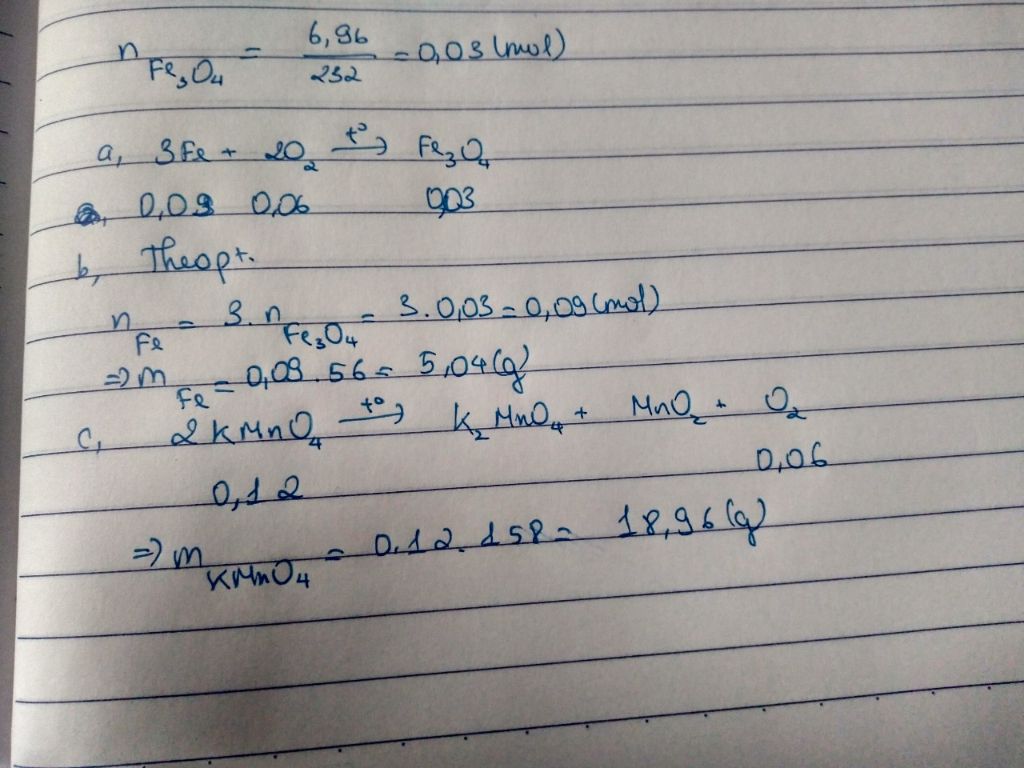 n Fe₃O₄ = 6,96/232 = 0,03 (mol)
a, 3Fe + 2O₂ –t°→ Fe₃O₄
0,09 0,06 0,03
b, Theo pt.
n Fe = 3. n Fe₃O₄ = 3. 0,03 = 0,09 (mol)
=> m Fe = 0,09 . 56 = 5,04 (g)
c, 2KMnO₄ –t°→ K₂MnO₄ + MnO₂ + O₂
0,12 0,06
=> m KMnO₄ = 0.12. 158 = 18,96 (g)